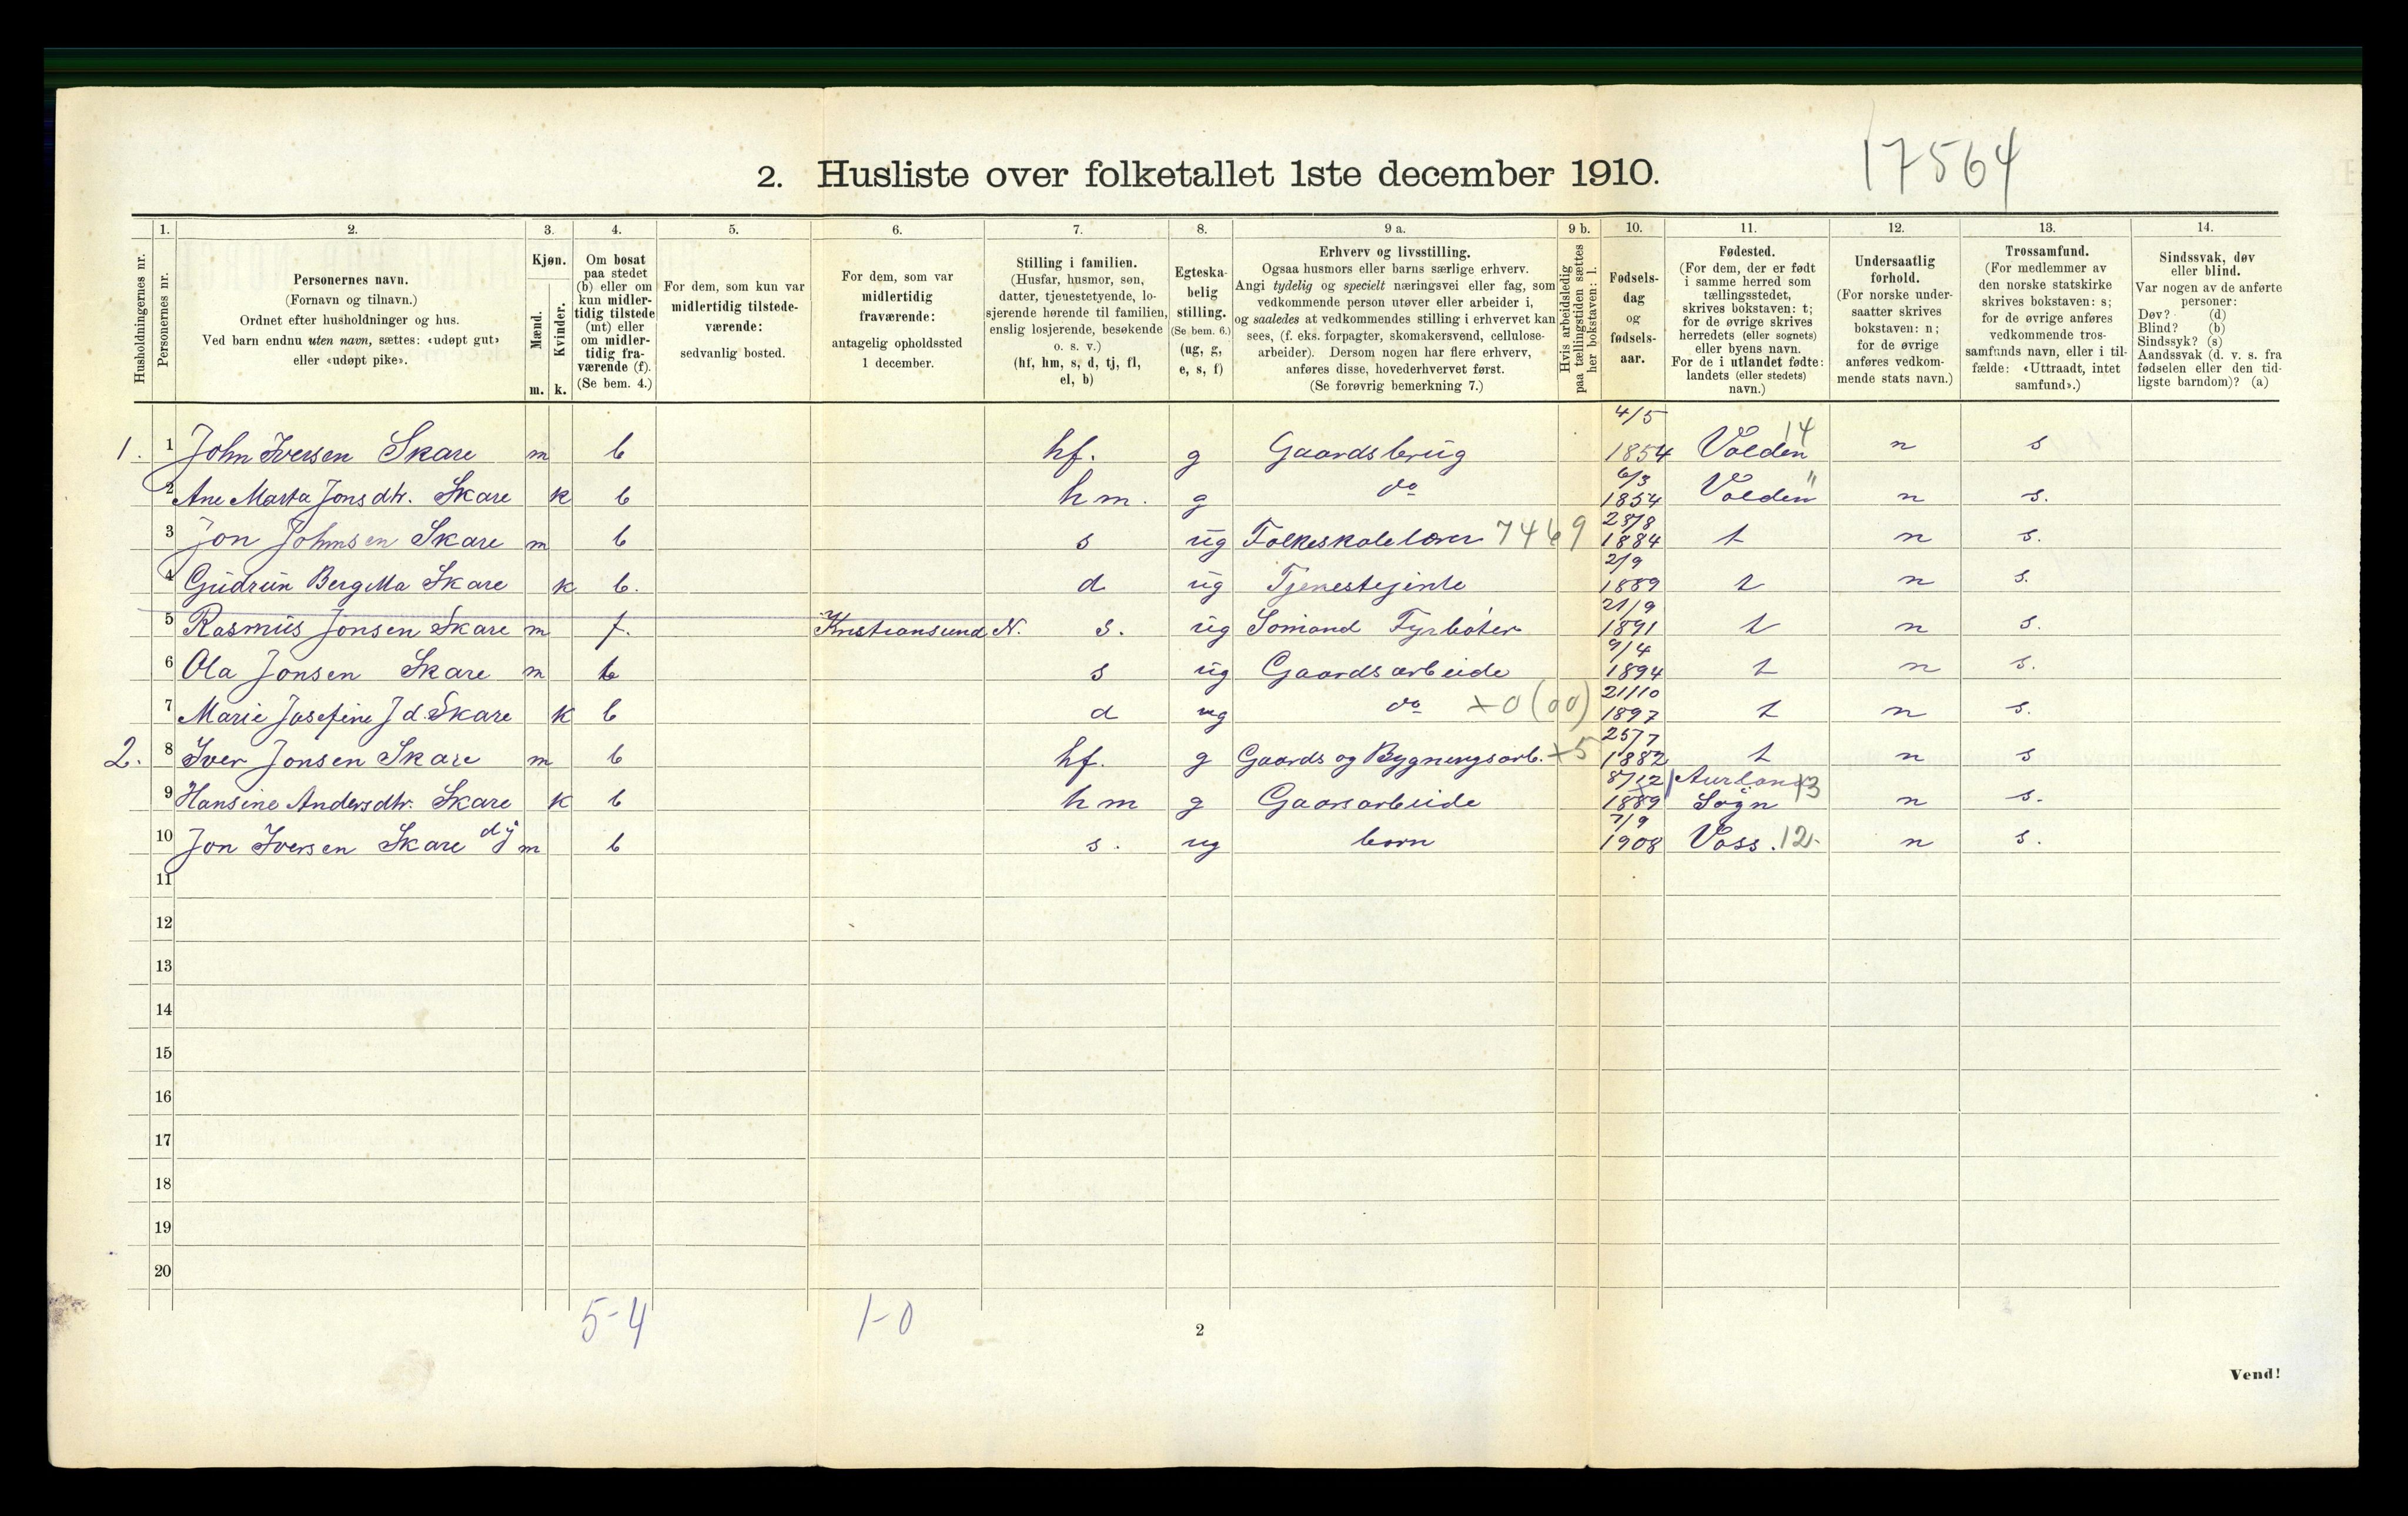 17564
2. Husliste over folketallet 1ste december 1910.
Husholdningernes nr.
1.
Personernes nr.
2.
Personernes navn.
(Fornavn og tilnavn.)
Ordnet efter husholdninger og hus.
Ved barn endnu uten navn, sættes: «udøpt gut»
eller «udøpt pike».
3.
Kjøn.
Mænd.
Kvinder.
m. k.
4.
Om bosat
paa stedet
(b) eller om
kun midler-
tidig tilstede
(mt) eller
om midler-
tidig fra-
værende (f).
(Se bem. 4.)
5.
For dem, som kun var
midlertidig tilstede-
værende:
sedvanlig bosted.
6.
For dem, som var
midlertidig
fraværende:
antagelig opholdssted
1 december.
7.
Stilling i familien.
(Husfar, husmor, søn,
datter, tjenestetyende, lo-
sjerende hørende til familien,
enslig losjerende, besøkende
o. s. v.)
(hf, hm, s, d, tj, fl,
el, b)
8.
Egteska-
belig
stilling.
(Se bem. 6.)
(ug, g,
e, s, f)
9 a.
Erhverv og livsstilling.
Ogsaa husmors eller barns særlige erhverv.
Angi tydelig og specielt næringsvei eller fag, som
vedkommende person utøver eller arbeider i,
og saaledes at vedkommendes stilling i erhvervet kan
sees, (f. eks. forpagter, skomakersvend, cellulose-
arbeider). Dersom nogen har flere erhverv,
anføres disse, hovederhvervet først.
(Se forøvrig bemerkning 7.)
9 b.
Hvis arbeidsledig
paa tællingstiden sættes
her bokstaven: l.
10.
Fødsels-
dag
og
fødsels-
aar.
11.
Fødested.
(For dem, der er født
i samme herred som
tællingsstedet,
skrives bokstaven: t;
for de øvrige skrives
herredets (eller sognets)
eller byens navn.
For de i utlandet fødte:
landets (eller stedets)
navn.)
12.
Undersaatlig
forhold.
(For norske under-
saatter skrives
bokstaven: n;
for de øvrige
anføres vedkom-
mende stats navn.)
13.
Trossamfund.
(For medlemmer av
den norske statskirke
skrives bokstaven: s;
for de øvrige anføres
vedkommende tros-
samfunds navn, eller i til-
fælde: «Uttraadt, intet
samfund».)
14.
Sindssvak, døv
eller blind.
Var nogen av de anførte
personer:
Døv? (d)
Blind? (b)
Sindssyk? (s)
Aandssvak (d. v. s. fra
fødselen eller den tid-
ligste barndom)? (a)
1. 1 John Iversen Skare m b hf. g Gaardsbrug 4/5 1854 Volden 14 n s
2 Ane Marta Jonsdtr. Skare k b hm. g do 6/3 1854 Volden " n s.
3 Jon Johnsen Skare m b s ug Folkeskolelærer 7469 28/8 1884 t n s.
4 Gudrun Bergitta Skare k b. d ug Tjenestejente 2/9 1889 t n s.
5 Rasmus Jonsen Skare m f. Kristiansund N. s. ug Sømand Fyrbøter 21/9 1891 t n s.
6 Ola Jonsen Skare m b s ug Gaardsarbeide 9/4 1894 t n s.
7 Marie Josefine J d. Skare k b d ug do x0 (00) 21/10 1897 t n s.
2. 8 Iver Jonsen Skare m b hf. g Gaards og Bygningsarb. x5 25/7 1882 t n s
9 Hansine Andersdtr. Skare k b hm g Gaarsarbeide 8/12 1889 Aurland Sogn 13 n s.
10 Jon Iversen Skare dy m b s. ug barn 7/9 1908 Voss. 12. n s.
11
12
13
14
15
16
17
18
19
20
5-4 1-0
2
Vend!